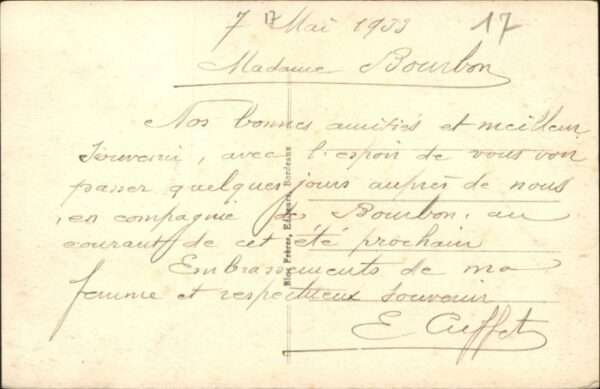 7 Mai 1933 17
Madame Bourbon
Nos bonnes amitiés et meilleur
souvenir, avec l'espoir de vous voir
passer quelques jours auprès de nous
, en compagnie de Bourbon, au
courant de cet été prochain
Embrassements de ma
femme et respectueux souvenir
E Cuffet
Bloc Frères, Editeurs, Bordeaux